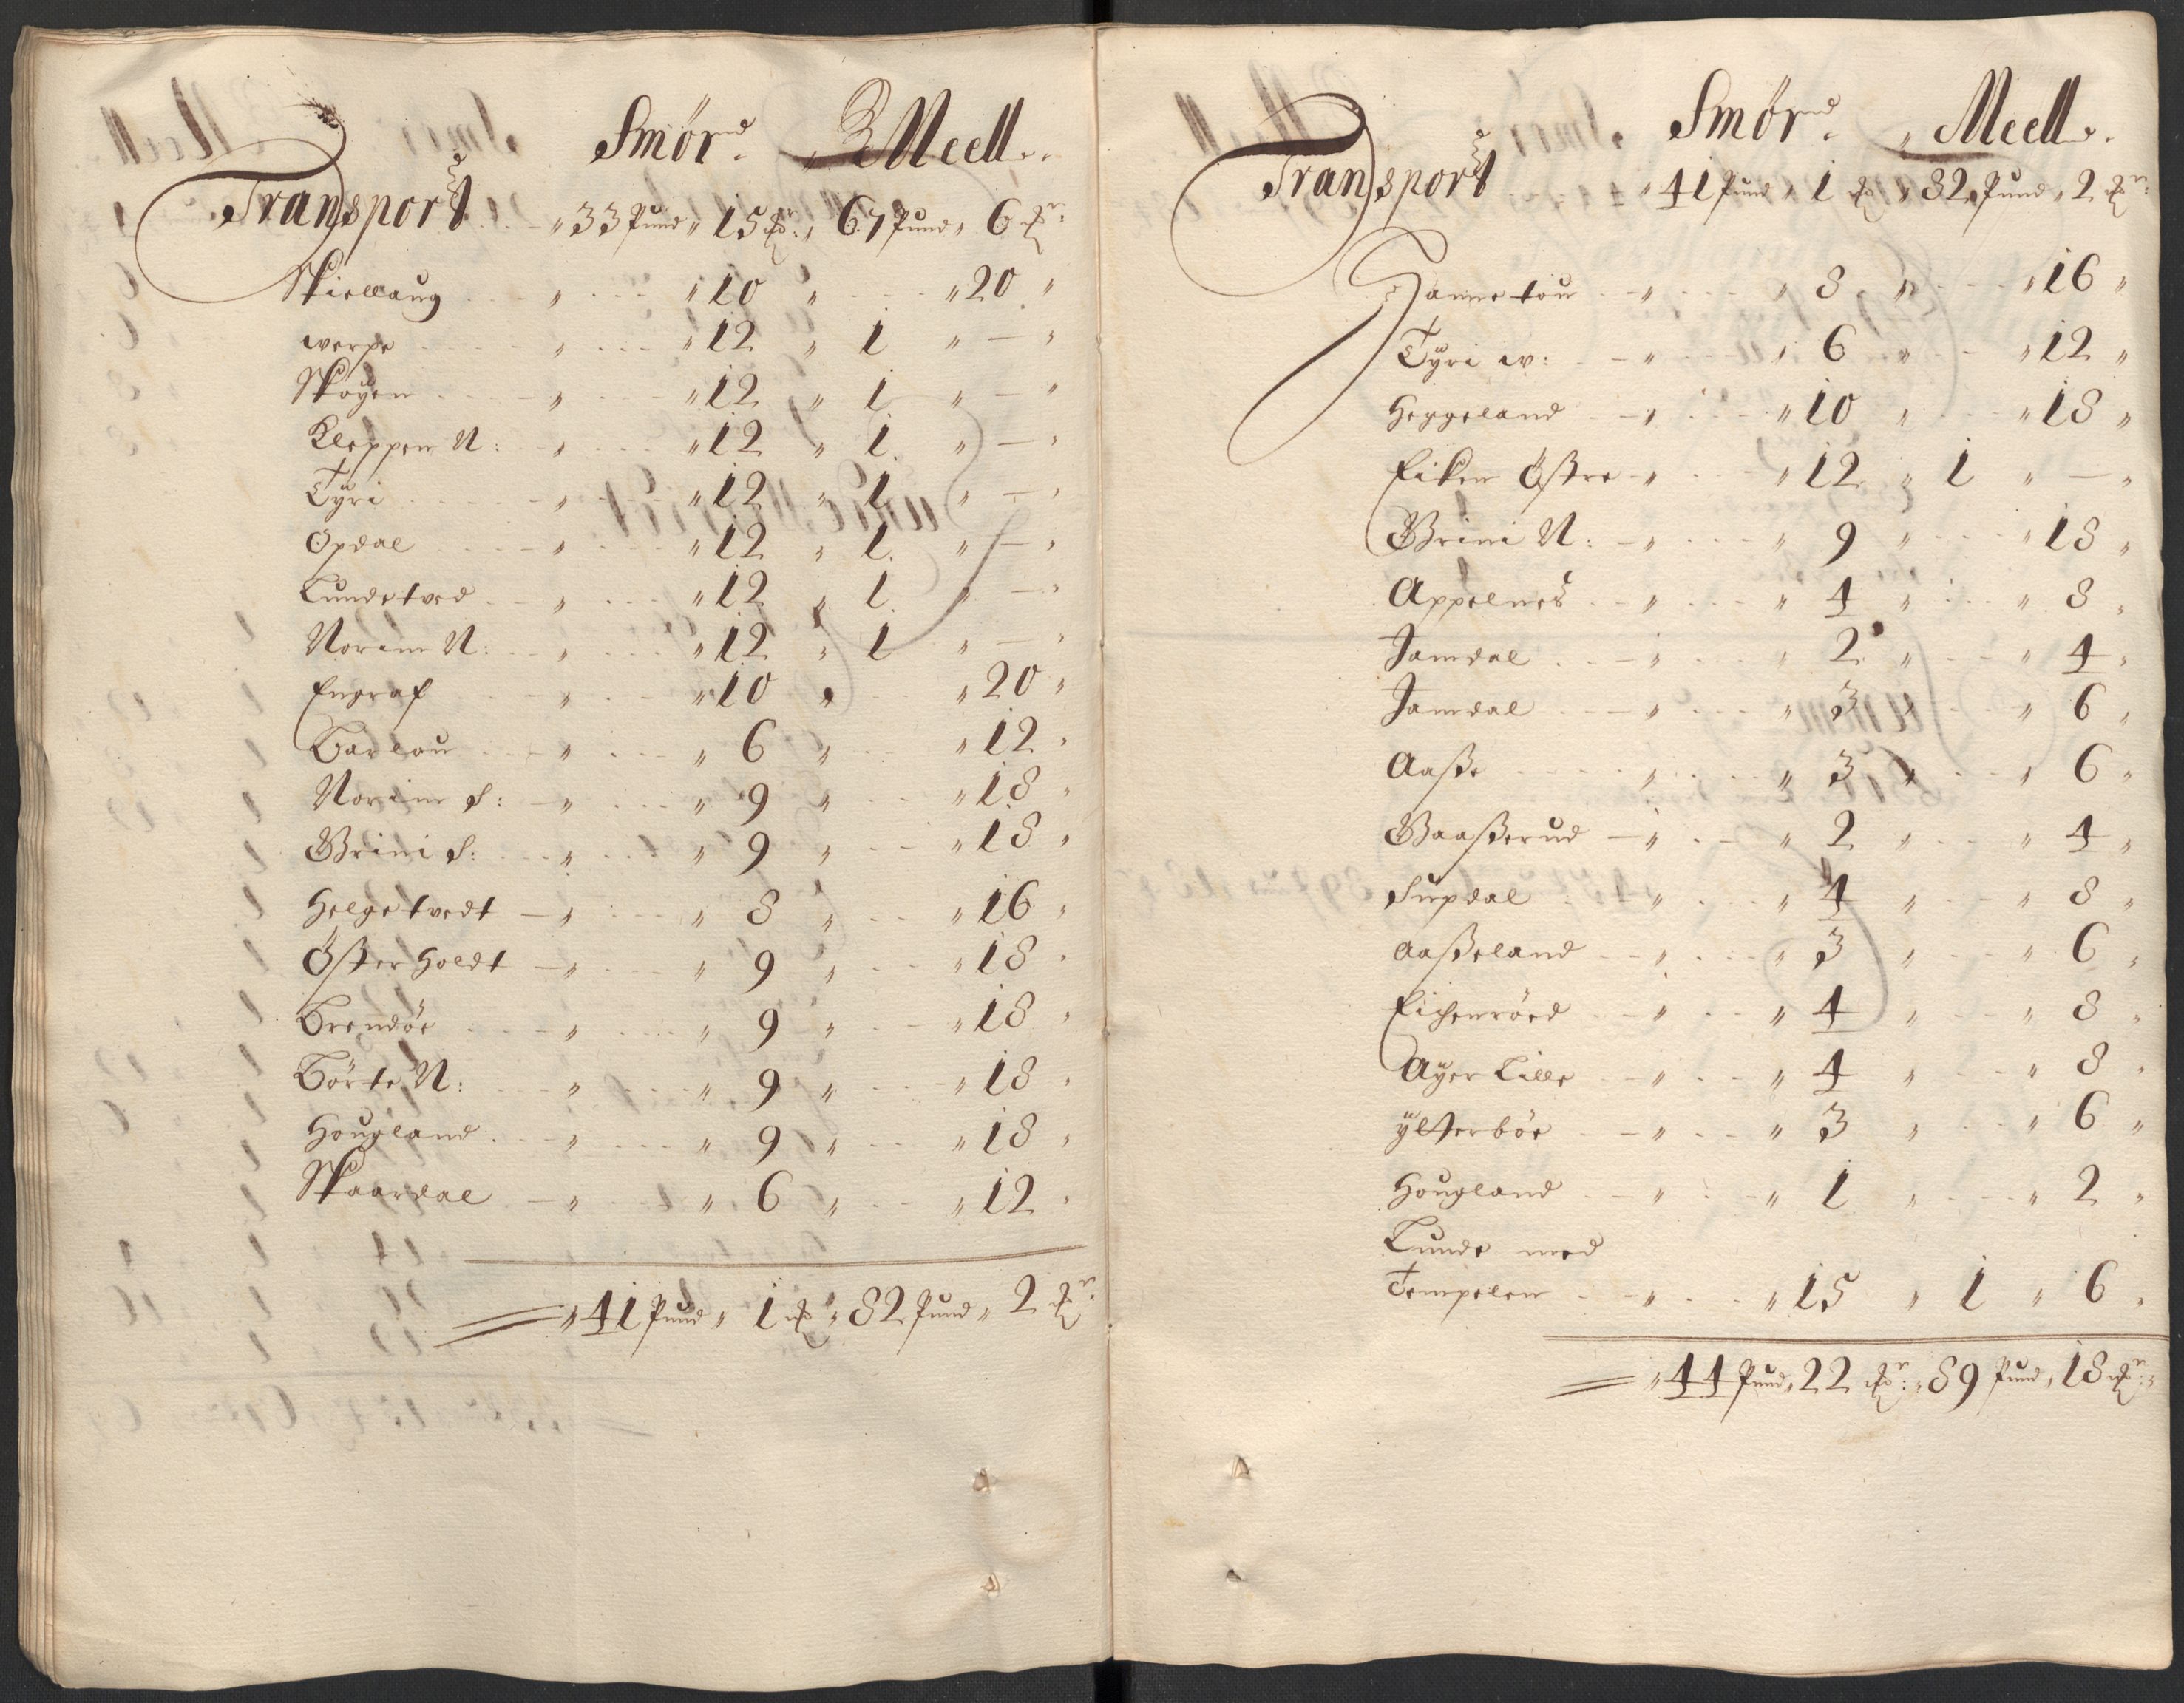 Smör Meell
Transport 33 Pund 15 67 Pund 6
Skiellaug 10 20
werpe 12 1 –
Skoyen 12 1 –
Kleppen N: 12 1 –
Tÿri 12 1 –
Opdal 12 1 –
Lundetved 12 1 –
Norim N: 12 1 –
Engraf 10 20
Barlau 6 12
Norim S: 9 18
Brini S: 9 18
Helgetvedt 8 16
Österholdt 9 18
Brendöe 9 18
Börte N: 9 18
Hougland 9 18
Skaardal 6 12
41 Pund 1 82 Pund 2
Smör Meell
Transport 41 Pund 1 82 Pund 2
Hannetou 8 16
Tÿri w: 6 12
Heggeland 10 18
Eiken Östre 12 1 –
Brini N: 9 18
Appelnes 4 8
Jamdal 2 4
Jamdal 3 6
Aasse 3 6
Baasserud 2 4
Supdal 4 8
Aasseland 3 6
Eichenröed 4 8
Aÿer Lille 4 8
ÿlterböe 3 6
Hougland 1 2
Lunde med
Tempelen 15 1 6
44 Pund 22 89 Pund 18